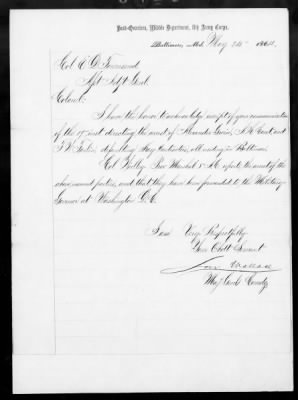 Head-Quarters, Middle Department, 8th Army Corps,
Baltimore, Md. May 24" 1864.
Col E. D. Townsend
Asst Adjt Genl
Colonel:
I have the honor to acknowledge receipt of your communication
of the 19" inst directing the arrest of
and
defaulting Hay Contractors, all residing in Baltimore.
Col Woolley Pro Marshal 8" A C reports the arrest of the
abovenamed parties, and that they have been forwarded to the Military
Governor at Washington D.C.
I am Very Respectfully
Your Obdt Servant
Lew Wallace
Maj Genl Comdg